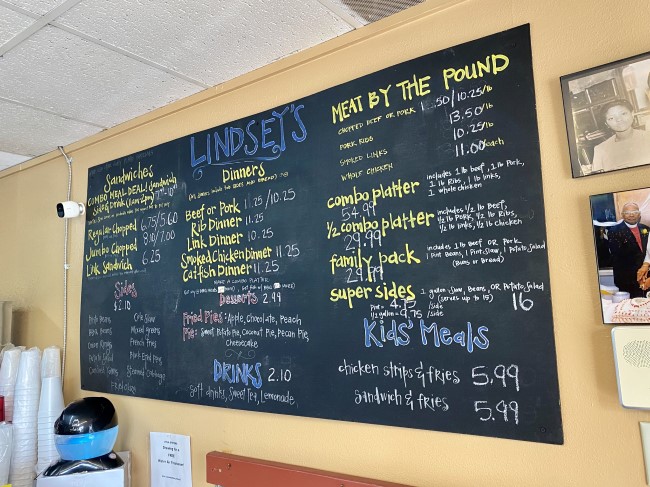 Sandwiches
COMBO MEAL DEAL! Sandwich
Side & Drink (11am-2pm) 7.99-10.99
Regular Chopped 6.75/5.60
Jumbo Chopped 8.10/7.00
Link Sandwich 6.25
Sides
$2.10
Pinto Beans
Green Beans
Onion Rings
Potato Salad
Cole Slaw
Mixed greens
French Fries
Fried Okra
LINDSEY'S
Dinners
Beef or Pork 11.25/10.25
Rib Dinner 11.25
Link Dinner 10.25
Smoked Chicken Dinner 11.25
Catfish Dinner 11.25
Make a Combo Platter
Desserts 2.99
Fried Pies: Apple, Chocolate, Peach
Pie: Sweet Potato Pie, Coconut Pie, Pecan Pie,
Cheesecake
DRINKS 2.10
Soft drinks, Sweet Tea, Lemonade
MEAT BY THE POUND
CHOPPED BEEF OR PORK 11.50/10.25/lb
PORK RIBS 13.50/lb
SMOKED LINKS 10.25/lb
WHOLE CHICKEN 11.00 each
combo platter
54.99
includes 1 lb beef, 1 lb Pork,
1 lb Ribs, 1 lb links,
1 whole chicken
1/2 combo platter
29.99
includes 1/2 lb Beef,
1/2 lb Pork, 1/2 lb Ribs,
1/2 lb Links, 1/2 lb Chicken
family pack
29.99
includes 1 lb Beef OR Pork
1 Pint Beans, 1 Pint Slaw, 1 Potato Salad
(Buns or Bread)
super sides
1 gallon Slaw, Beans, OR Potato Salad
(serves up to 15) 16
Pint = 4.75/side
1/2 gallon = 9.75/side
Kids' Meals
chicken strips & fries 5.99
sandwich & fries 5.99